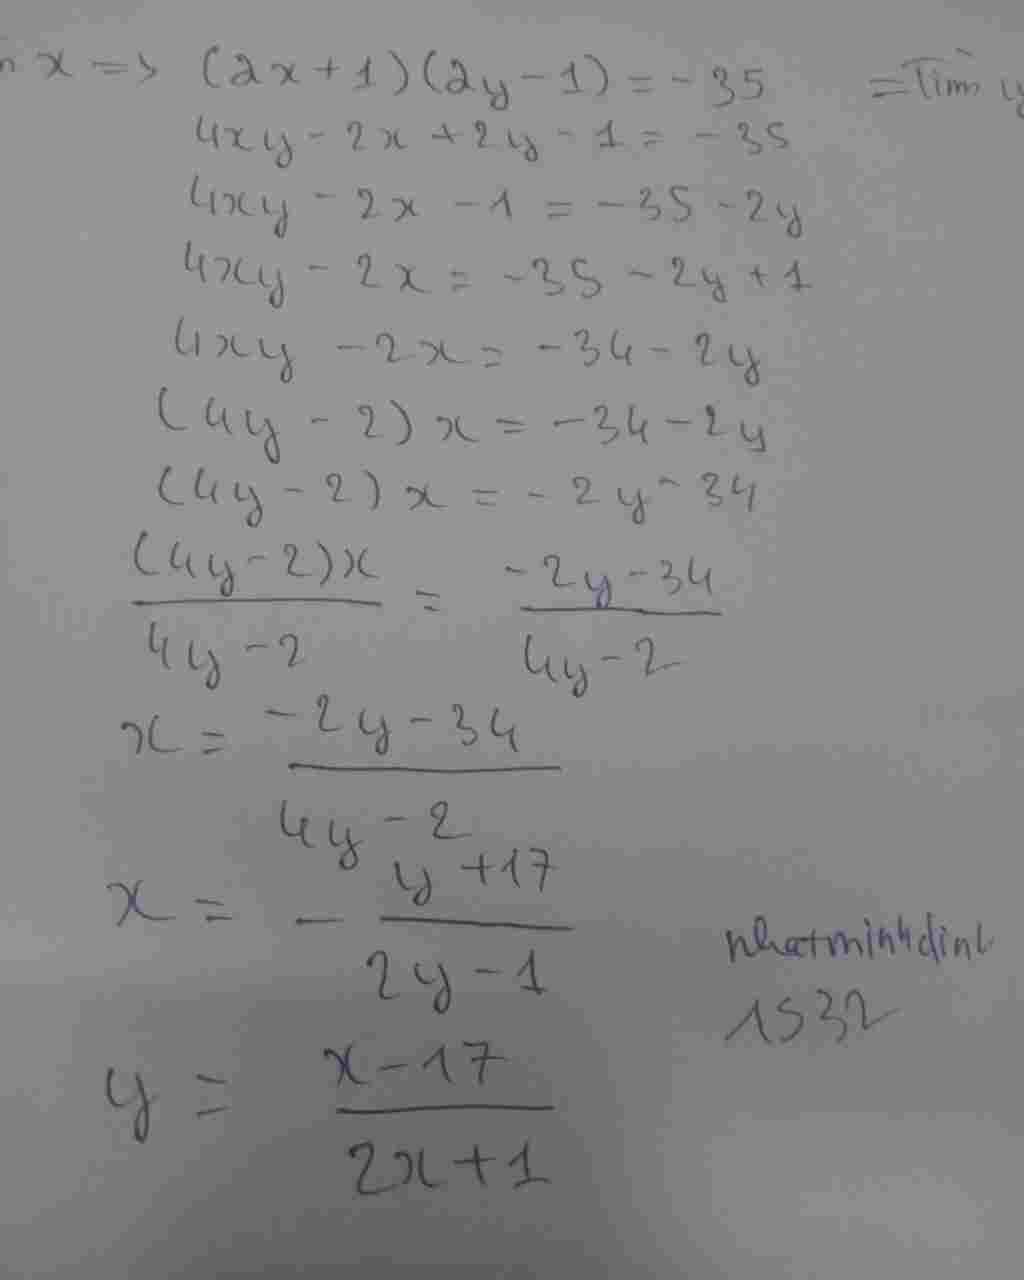 x => (2x+1)(2y-1) = -35 = Tìm y
4xy - 2x + 2y - 1 = -35
4xy - 2x - 1 = -35 - 2y
4xy - 2x = -35 - 2y + 1
4xy - 2x = -34 - 2y
(4y - 2) x = -34 - 2y
(4y - 2) x = -2y - 34
(4y-2)x / 4y-2 = -2y-34 / 4y-2
x = -2y-34 / 4y-2
x = - y+17 / 2y-1
nhatminhdinh
1532
y = x-17 / 2x+1